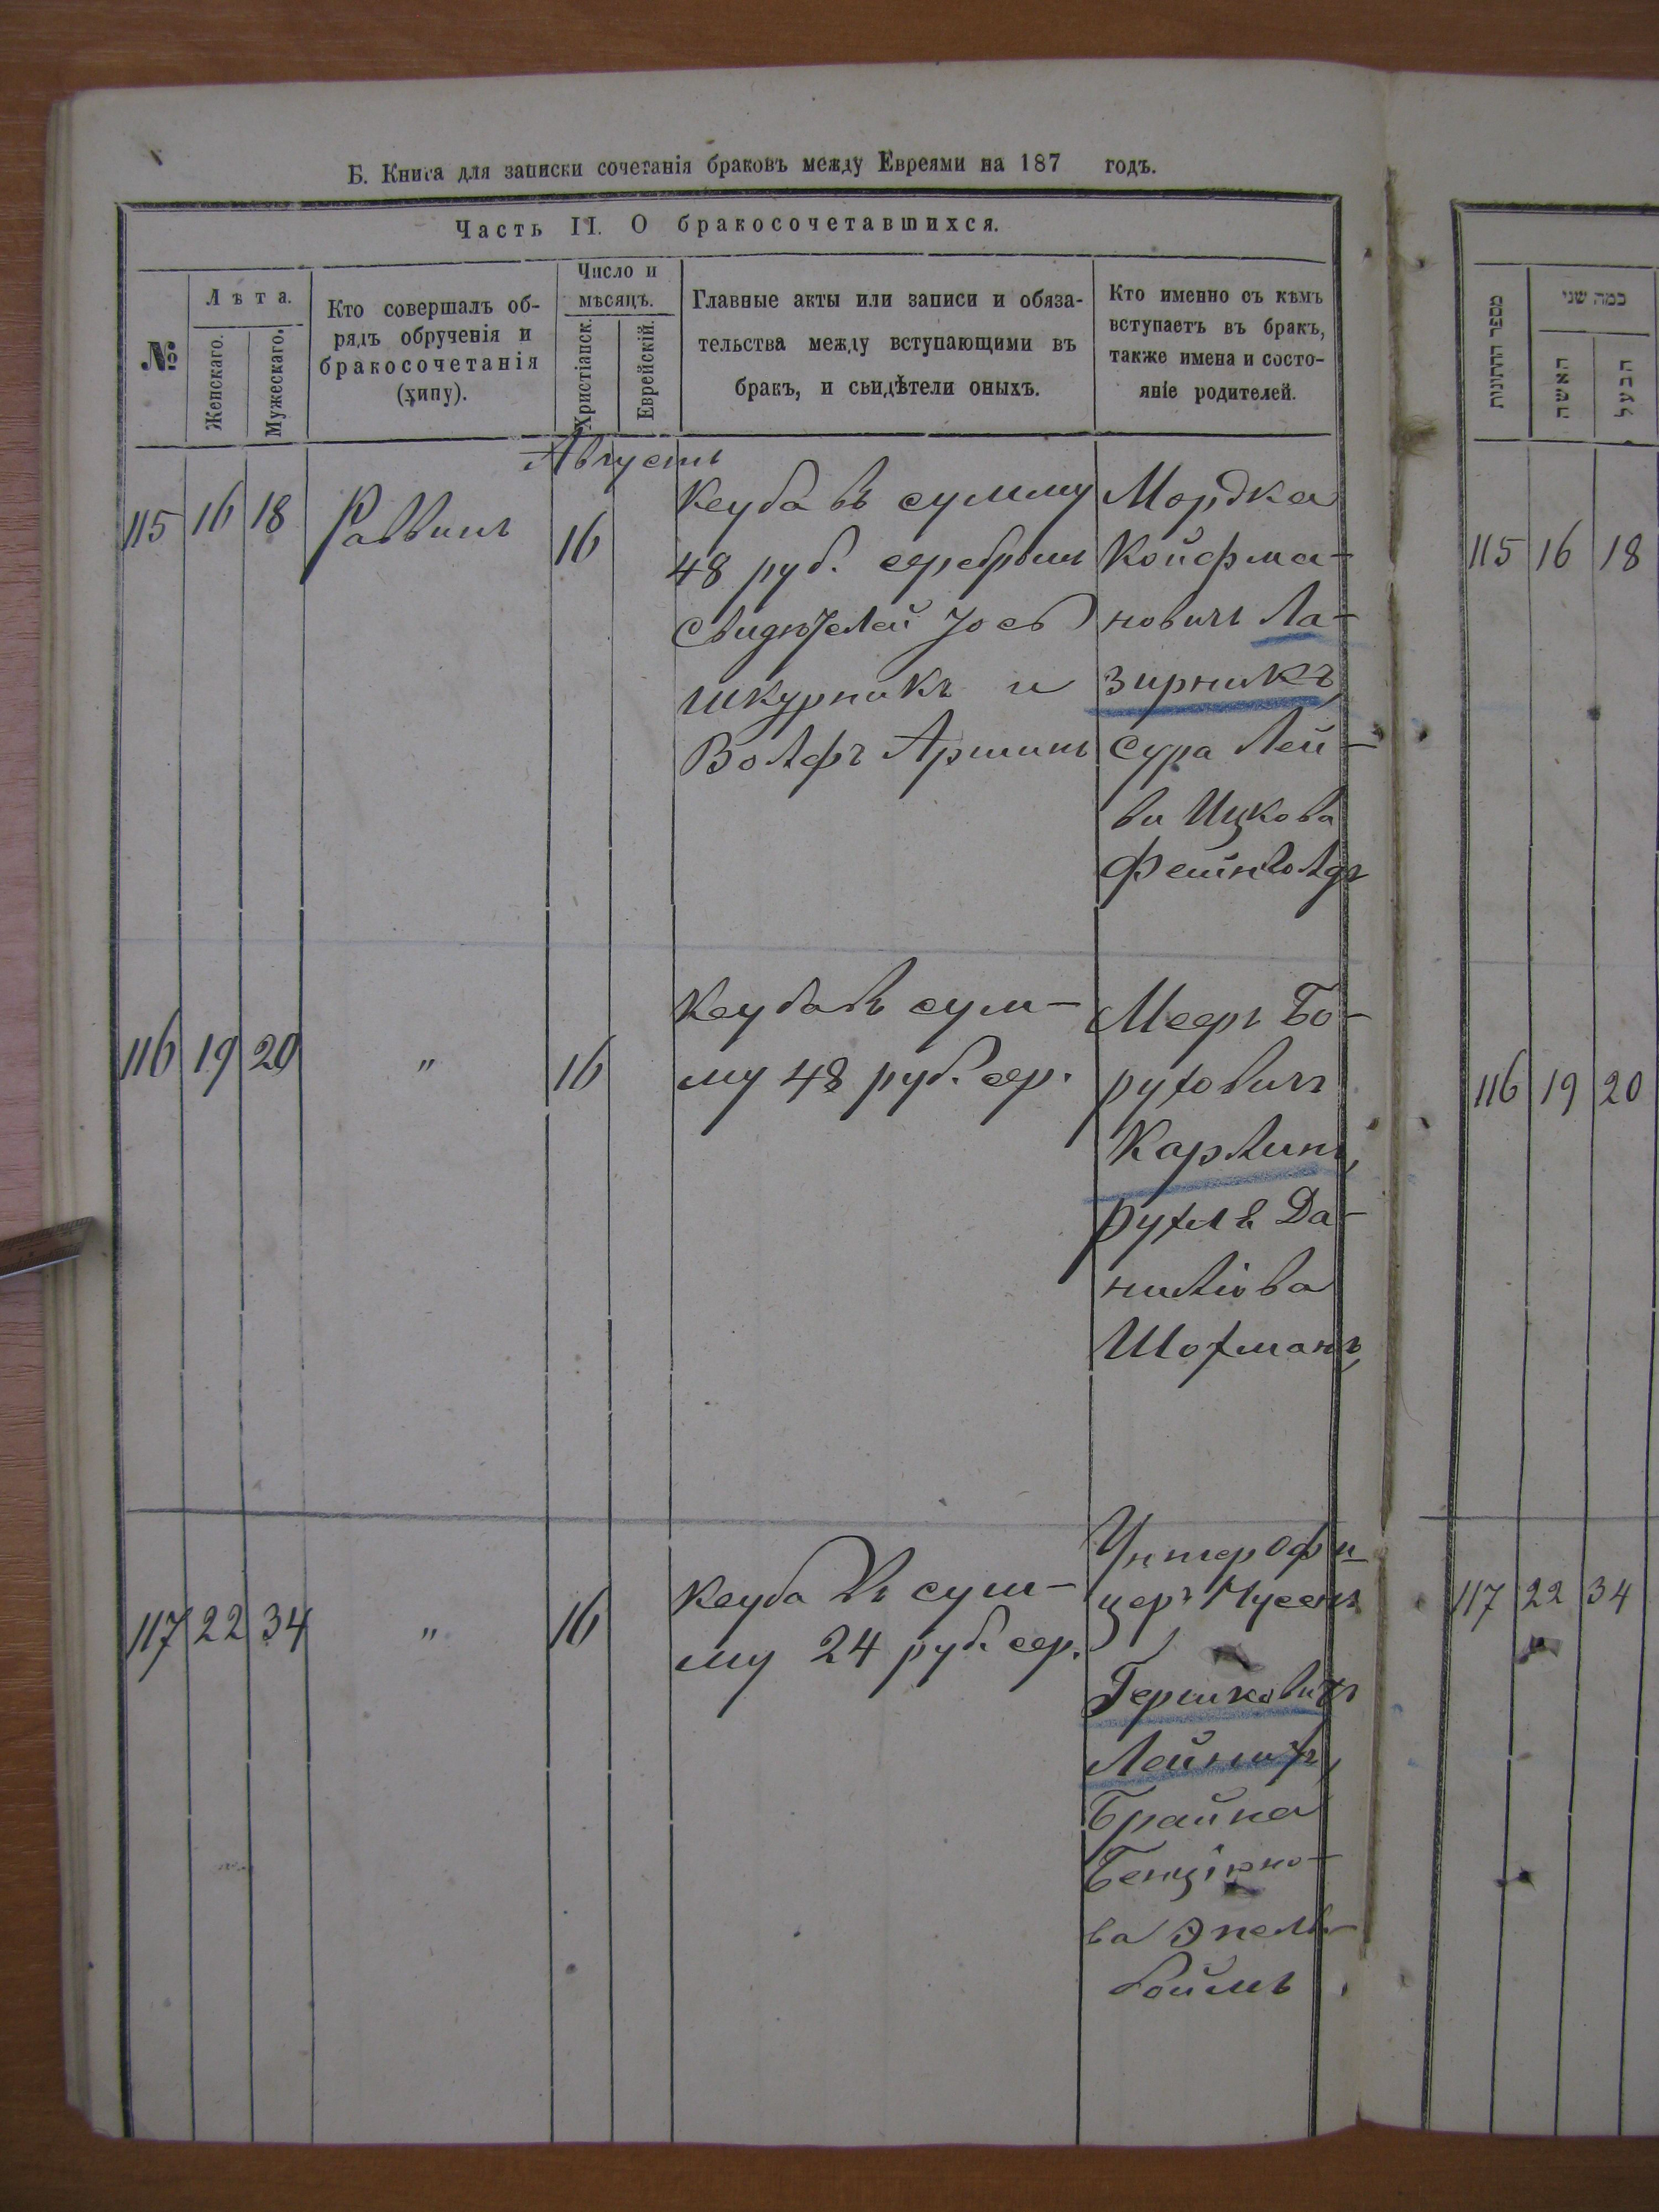 Б. Книга для записки сочетанія браковъ между Евреями на 187 годъ.
Часть II. О бракосочетавшихся.
№
Лѣта.
Женскаго.
Мужескаго.
Кто совершалъ об-
рядъ обрученія и
бракосочетанія
(хипу).
Число и
мѣсяцъ.
Христіанск.
Еврейскій.
Главные акты или записи и обяза-
тельства между вступающими въ
бракъ, и свидѣтели оныхъ.
Кто именно съ кѣмъ
вступаетъ въ бракъ,
также имена и состо-
яніе родителей.
Августъ
115 16 18 Раввинъ 16
Кеуба въ сумму
48 руб. серебромъ
Свидѣтелей Іось
Шкурникъ и
Волфъ Аршинъ
Мордка
Койфма-
новичъ Ла-
зирникъ,
Сура Лей-
ви Ицкова
Фейнволдъ
116 19 20 " 16
Кеуба въ сум-
му 48 руб. сер.
Мееръ Бо-
руховичъ
Карлинъ,
Рухля Да-
нилiова
Шохманъ,
117 22 34 " 16
Кеуба въ сум-
му 24 руб. сер.
Унтерофи
церъ Мусенъ
Гершковичъ
Лейнихъ,
Брайна
Бенціоно-
ва Эпель-
боймъ
מספר החתונות
כמה שני
האשה
הבעל
115 16 18
116 19 20
117 22 34